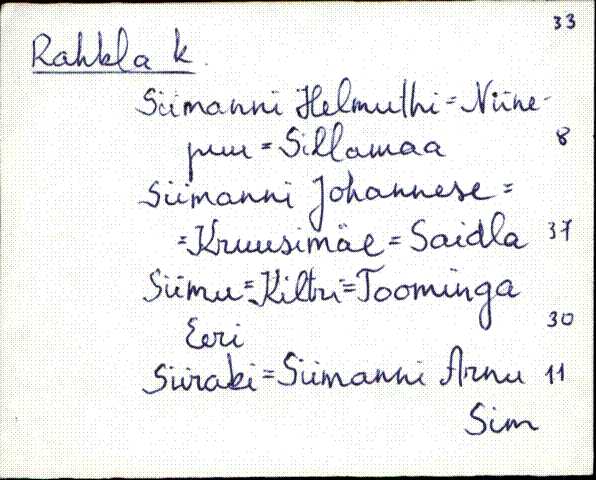 33
Rahkla k.
Siimanni Helmuthi = Niine-
puu = Sillamaa 8
Siimanni Johannese =
= Kruusimäe = Saidla 37
Siimu = Kiltri = Toominga
Eeri 30
Siiraki = Siimanni Arnu 11
Sim